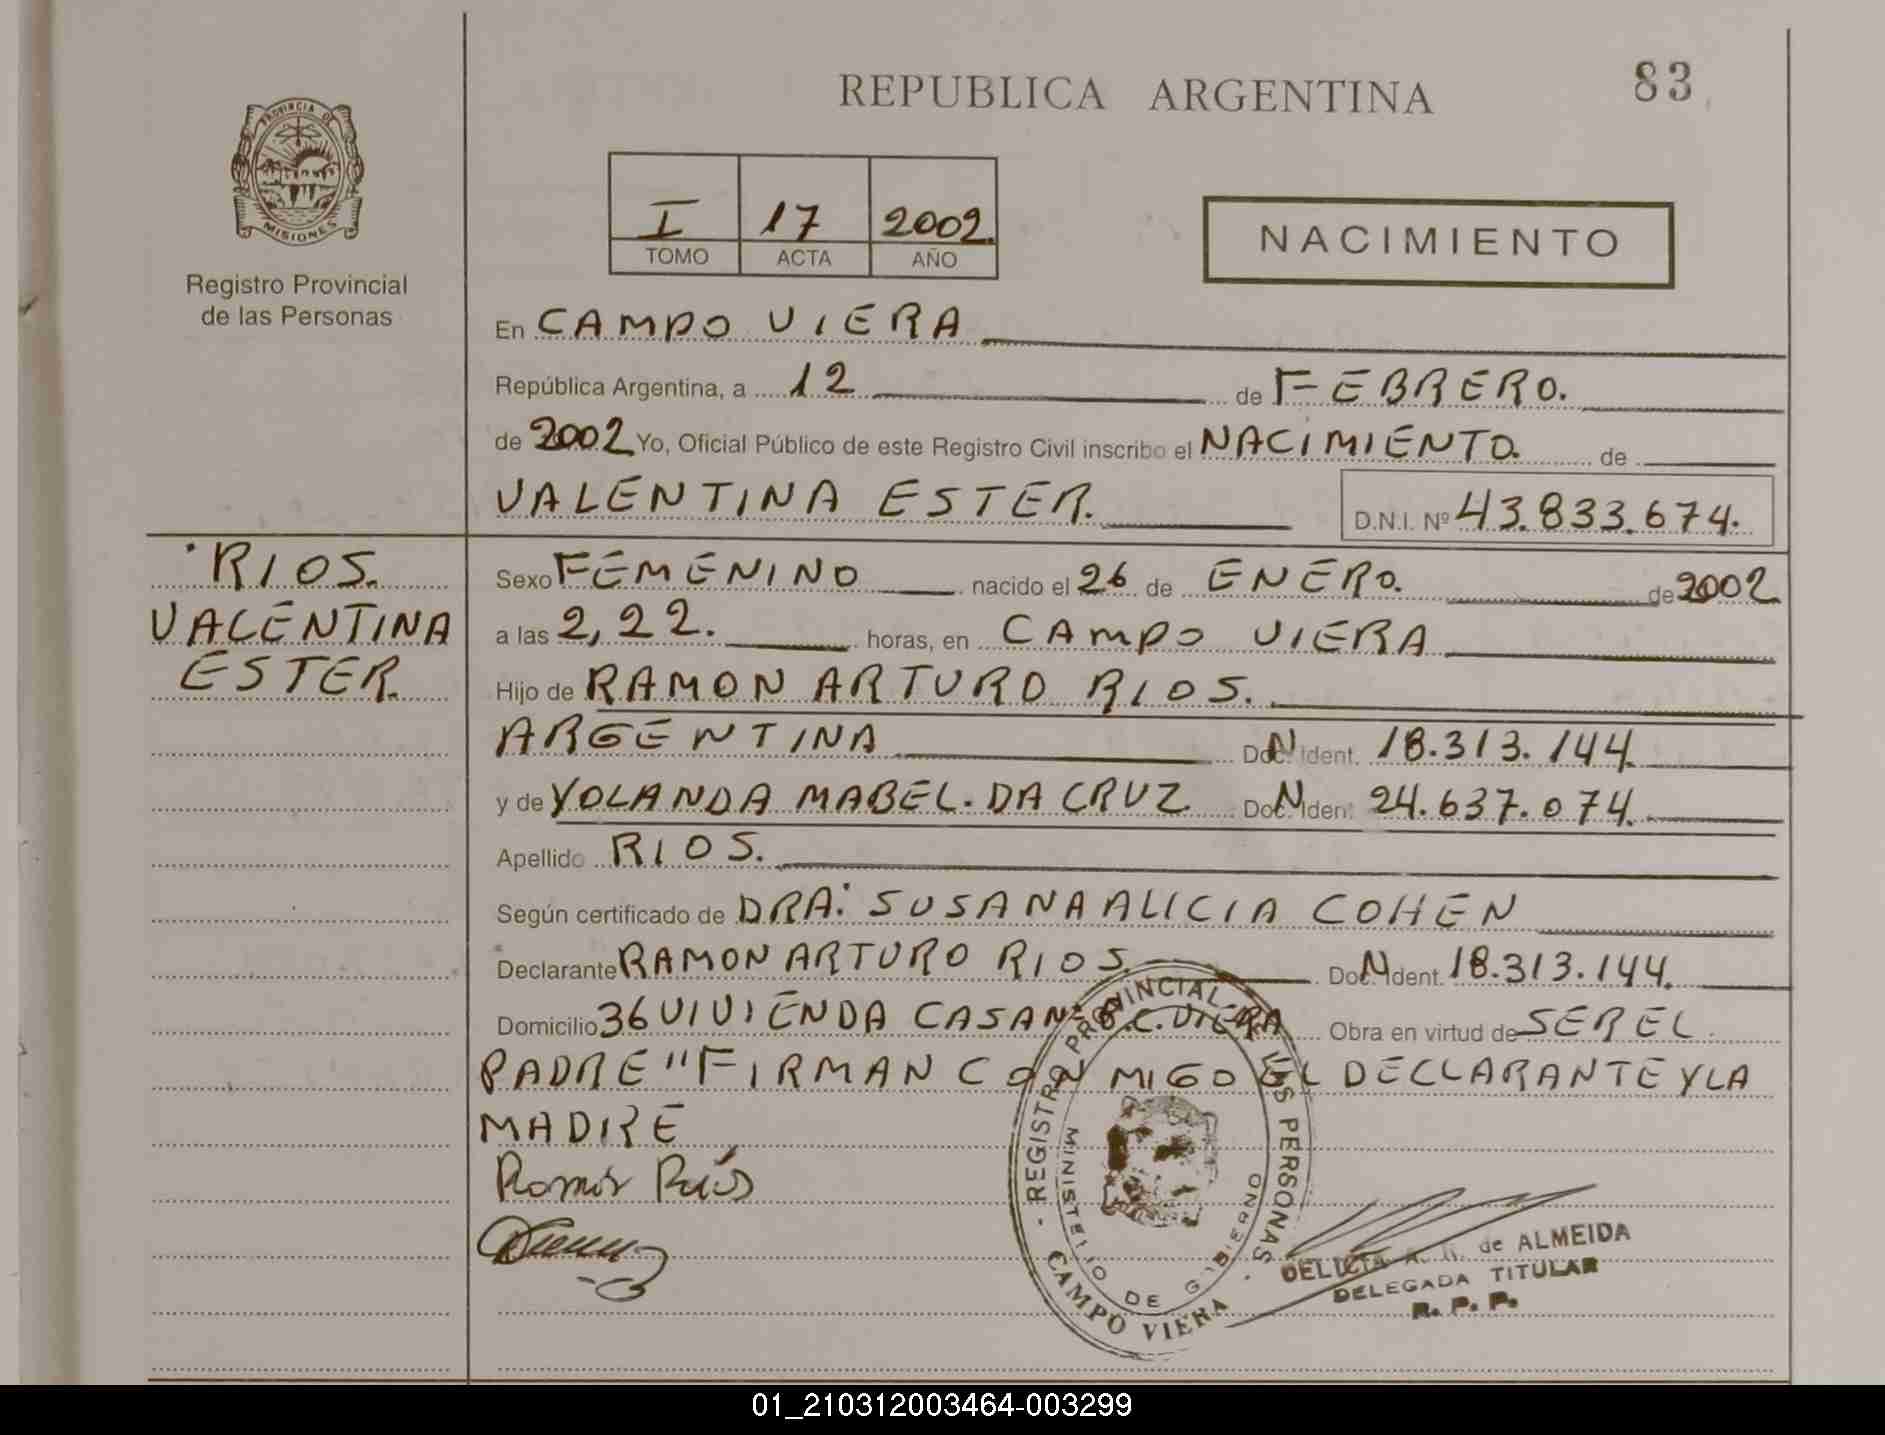 REPUBLICA ARGENTINA
83
PROVINCIA DE
MISIONES
Registro Provincial
de las Personas
I 17 2002
TOMO ACTA AÑO
NACIMIENTO
En CAMPO VIERA
República Argentina, a 12 de FEBRERO.
de 2002 Yo, Oficial Público de este Registro Civil inscribo el NACIMIENTO. de
VALENTINA ESTER. D.N.I. Nº 43.833.674.
RIOS.
VALENTINA
ESTER.
Sexo FEMENINO nacido el 26 de ENERO. de 2002
a las 2,22. horas, en CAMPO VIERA
Hijo de RAMON ARTURO RIOS.
ARGENTINA Doc. Ident. 18.313.144.
y de YOLANDA MABEL. DA CRUZ. Doc. Iden. 24.637.074.
Apellido RIOS.
Según certificado de DRA: SUSANA ALICIA COHEN
Declarante RAMON ARTURO RIOS. Doc. Ident. 18.313.144.
Domicilio 36 VIVIENDA CASA Nº 8.C.VIERA Obra en virtud de SEREL
PADRE "FIRMAN CONMIGO EL DECLARANTE Y LA
MADRE
Ramon Rios
- REGISTRO PROVINCIAL DE LAS PERSONAS -
CAMPO VIERA
MINISTERIO DE GOBIERNO
DELICIA A. de ALMEIDA
DELEGADA TITULAR
R. P. P.
01_210312003464-003299